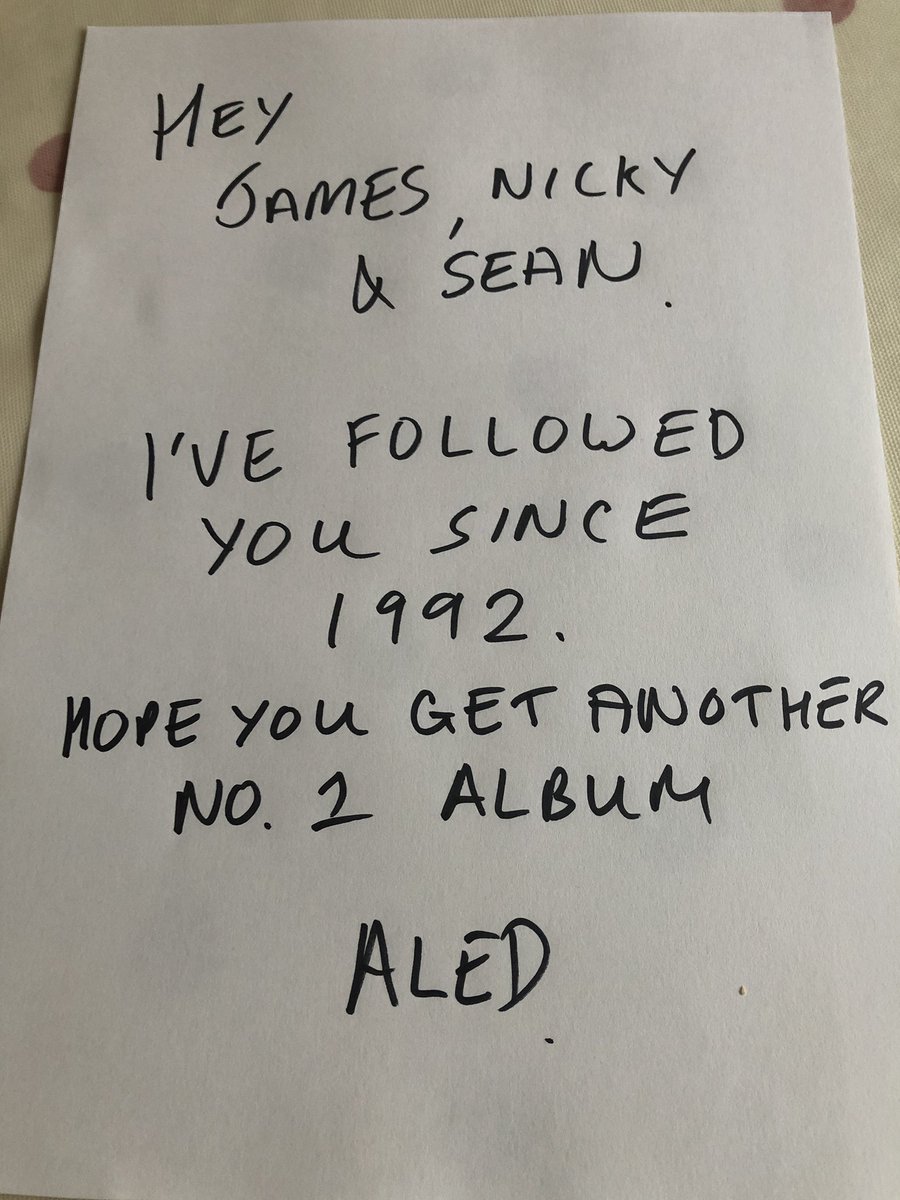 HEY
JAMES, NICKY
& SEAN.
I'VE FOLLOWED
YOU SINCE
1992.
HOPE YOU GET ANOTHER
NO. 1 ALBUM
ALED.